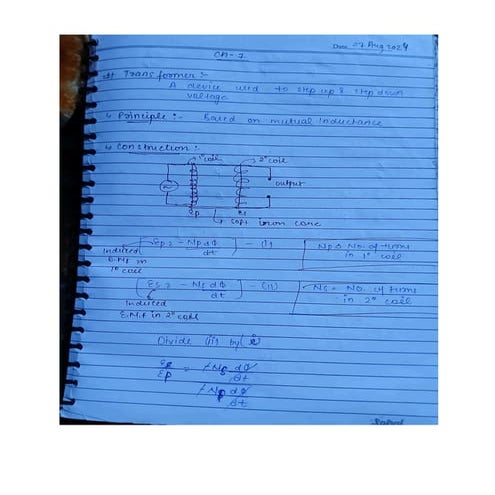 Date 07 Aug 2024
CH-7
Transformer :-
A device used to step up & step down
voltage
Principle :- Based on mutual inductance
Construction :-
1° coil 2° coil
output
Ep Es
soft iron core
Ep = -Np dφ/dt - (i) Np = No. of turns
in 1° coil
Induced
E.M.F in
1° coil
Es = -Ns dφ/dt - (ii) Ns = No. of turns
in 2° coil
Induced
E.M.F in 2° coil
Divide (ii) by (i)
Es/Ep = -Ns dφ/dt / -Np dφ/dt